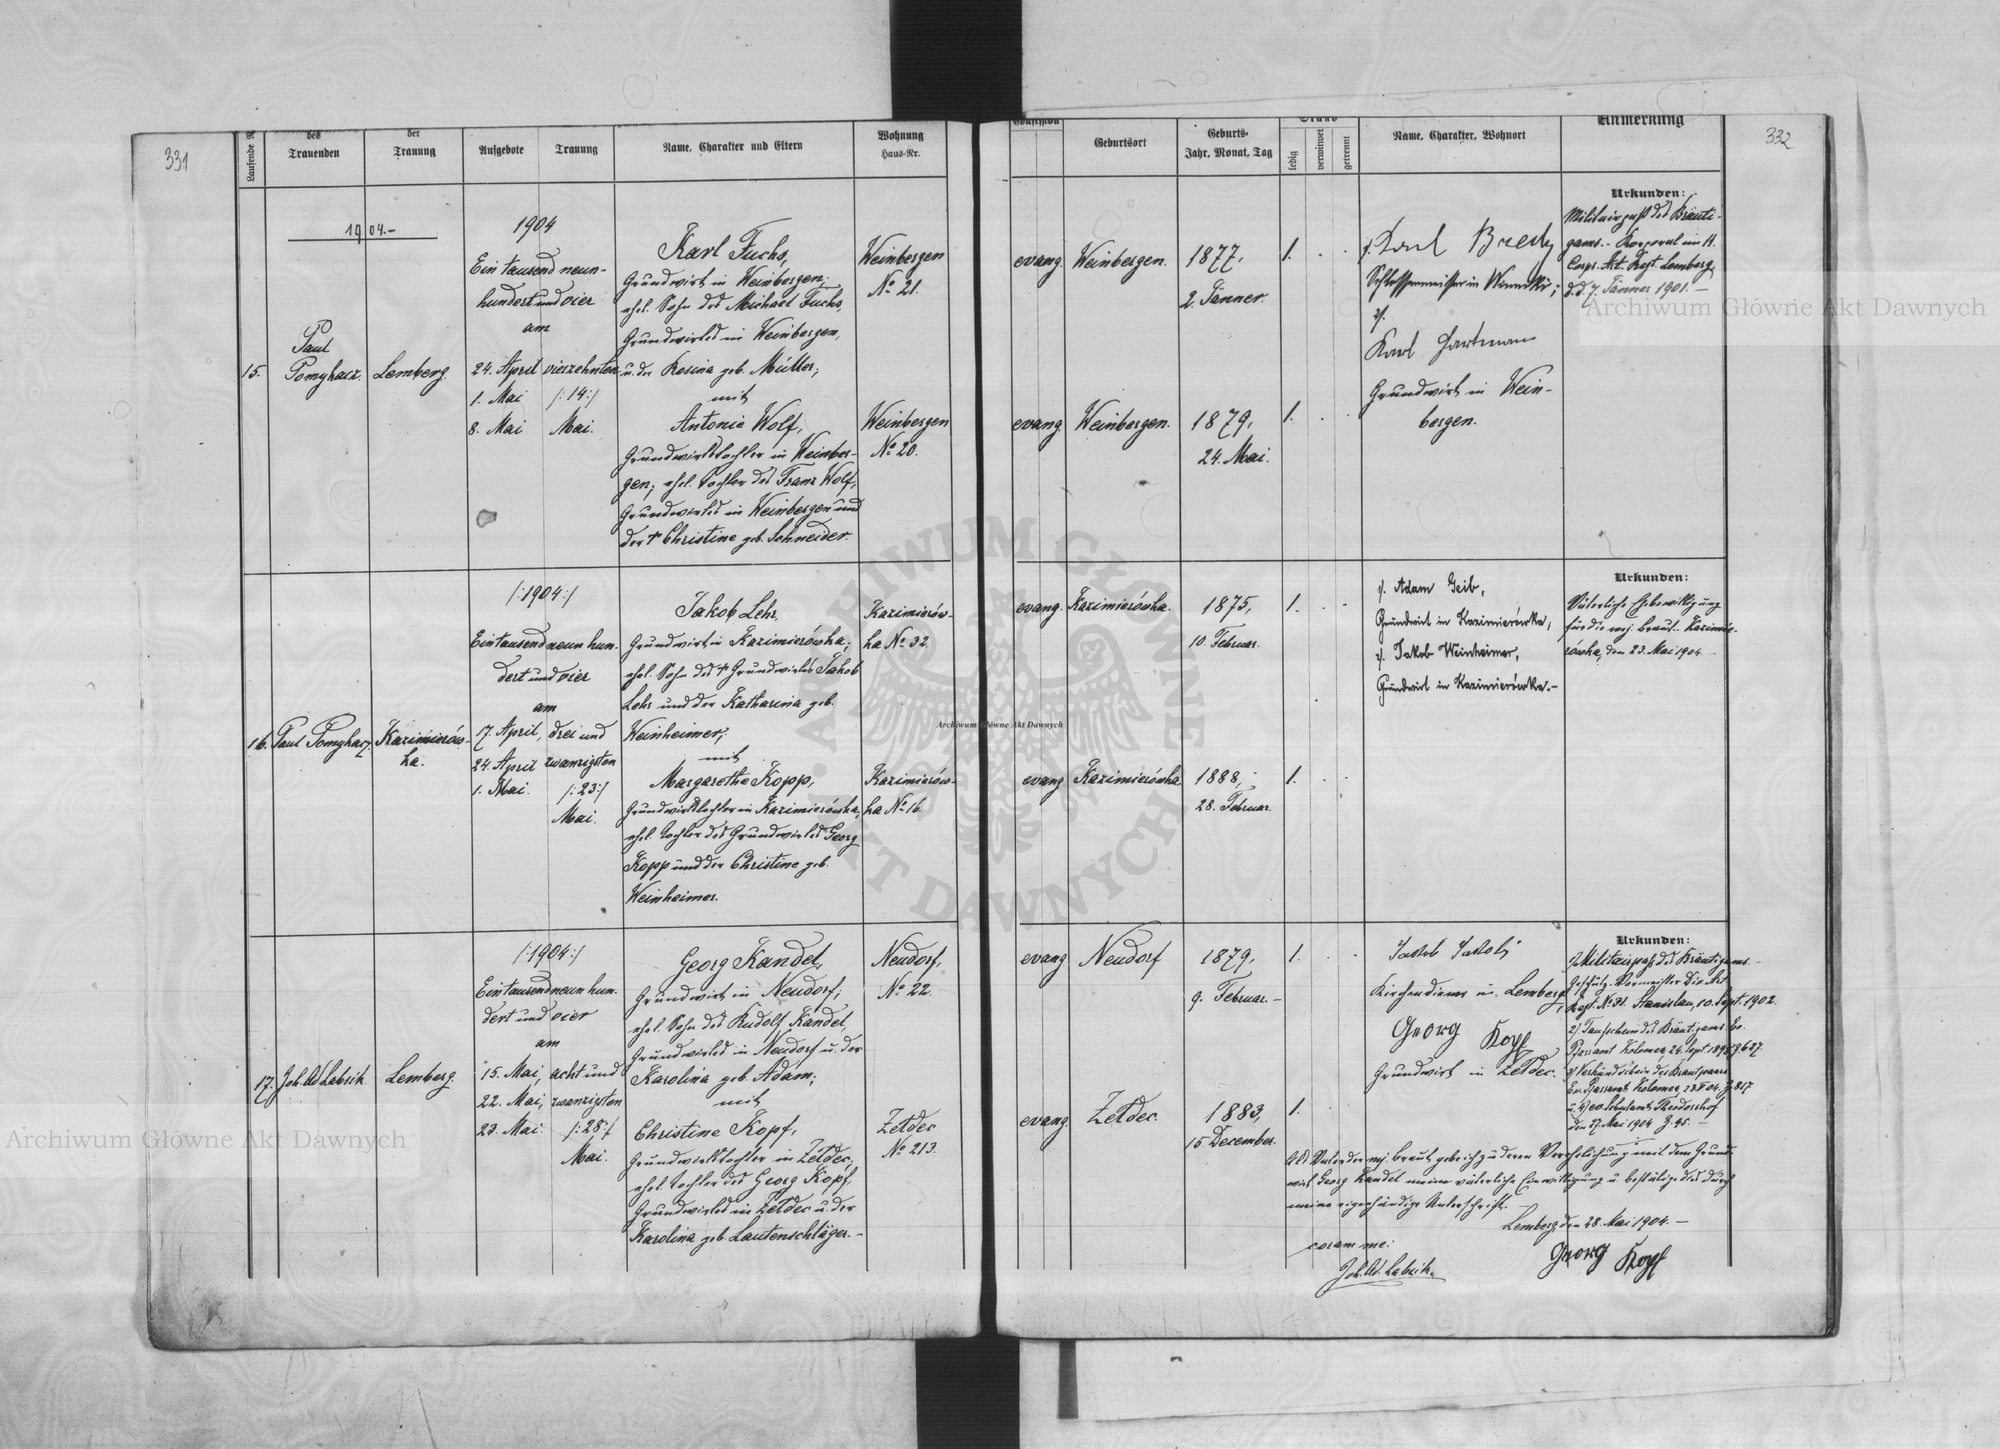 331
332
Laufende
des Trauenden
der Trauung
Aufgebote
Trauung
Name, Charakter und Eltern
Wohnung Haus-Nr.
Confession
Geburtsort
Geburts- Jahr, Monat, Tag
Stand
ledig
verwitwet
getrennt
Name, Charakter, Wohnort
Anmerkung
1904.-
15.
Paul
Pomykacz.
Lemberg.
1904
Ein tausend neun-
hundert und vier
am
24. April vierzehnten
1. Mai /:14:/
8. Mai Mai.
Karl Fuchs,
Grundwirt in Weinbergen;
ehel. Sohn des Michael Fuchs,
Grundwirtes in Weinbergen,
u. der Rosina geb. Müller,
mit
Antonie Wolf,
Grundwirtstochter in Weinber-
gen; ehel. Tochter des Franz Wolf,
Grundwirtes in Weinbergen und
der + Christine geb. Schneider.
Weinbergen
No 21.
Weinbergen
No 20.
evang. Weinbergen.
1877,
2. Jänner.
1.
evang. Weinbergen.
1879,
24. Mai.
1.
Schlossermeister in Winniki;
2/.
Karl Hartman
Grundwirt in Wein-
bergen.
Urkunden:
Militairpaß des Bräuti-
gams. - Korporal im 11.
Corps. Art. Regt. Lemberg,
d.d. 7. Jänner 1901. -
16.
Paul Pomykacz
Kazimierów-
ka.
/:1904:/
Eintausendneunhun-
dert und vier
am
17. April, drei und
24. April zwanzigsten
1. Mai. /:23:/
Mai.
Jakob Lehr,
Grundwirt in Kazimierówka;
ehel. Sohn des + Grundwirtes Jakob
Lehr und der Katharina geb.
Weinheimer,
mit
Margarethe Kopp,
Grundwirtstochter in Kazimierówka,
ehel. Tochter des Grundwirtes Georg
Kopp und der Christine geb.
Weinheimer.
Kazimierów-
ka No 32.
Kazimierów-
ka No 16.
evang. Kazimierówka.
1875,
10. Februar.
1.
evang. Kazimierówka
1888,
28. Februar
1.
1/. Adam Geib,
Grundwirt in Kazimierówka;
2/. Jakob Weinheimer,
Grundwirt in Kazimierówka.-
Urkunden:
Väterliche Ehebewilligung
für die mj. Braut. Kazimie-
rówka, den 23. Mai 1904.
17.
Joh. Ad. Labsik
Lemberg.
/:1904:/
Eintausendneunhun-
dert und vier
am
15. Mai, acht und
22. Mai, zwanzigsten
23. Mai. /:28:/
Mai.
Georg Kandel,
Grundwirt in Neudorf;
ehel. Sohn des Rudolf Kandel,
Grundwirtes in Neudorf u. der
Karolina geb. Adam;
mit
Christine Kopf,
Grundwirtstochter in Zétdec,
ehel. Tochter des Georg Kopf,
Grundwirtes in Zétdec u. der
Karolina geb. Lautenschläger.-
Neudorf,
No 22.
Zétdec
No 213.
evang Neudorf
1879,
9. Februar.-
1.
evang. Zétdec.
1883,
15 December.
1.
Jakob Jakobi
Kirchendiener u. Lemberg,
Georg Kopf
Grundwirt in Zétdec.
Urkunden:
1/ Militairpaß des Bräutigams.
Regt. No 31. Stanislau, 10. Sept. 1902.
2/. Taufschein des Bräutigams. Ev.
Pfarramt Kolomea 24. Sept 1895 Z. 627.
3/ Verkündschein des Brautpaares
u. 4/ ev. Schulamts Theodorshof
den 27. Mai 1904 Z. 45. -
Als Vater der mj. Braut gebe ich zu deren Verehelichung mit dem Grund-
wirt Georg Kandel meine väterliche Einwilligung u. bestätige dies durch
meine eigenhändige Unterschrift. -
Lemberg den 28. Mai 1904. -
coram me:
Joh. Ad. Labsik.
Georg Kopf
Archiwum Główne Akt Dawnych
Archiwum Główne Akt Dawnych
Archiwum Główne Akt Dawnych
ARCHIWUM GŁÓWNE AKT DAWNYCH